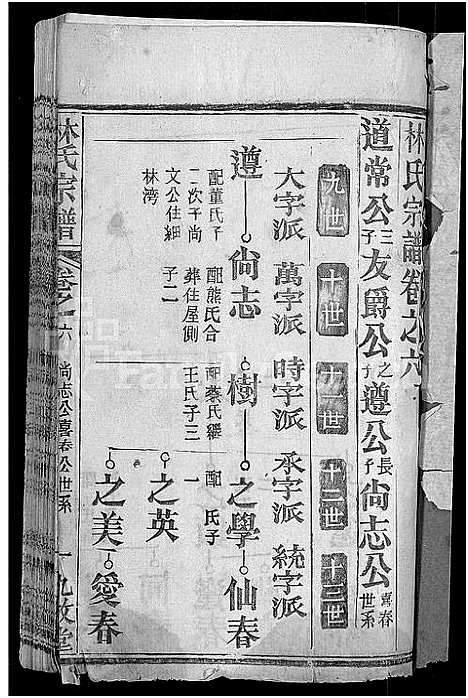 林氏宗譜卷之六
道常公三子友爵公之子遵公長子尚志公喜春世系
九世 十世 十一世 十二世 十三世
大字派 萬字派 時字派 承字派 統字派
遵 尚志 樹 之學 仙春
配董氏子 配熊氏合 配蔡氏繼 配 氏子
二次子尚 葬住屋側 王氏子三 一
文公住細 子二
林灣
之英
之美 愛春
林氏宗譜 卷之六 尚志公喜春公世系 一